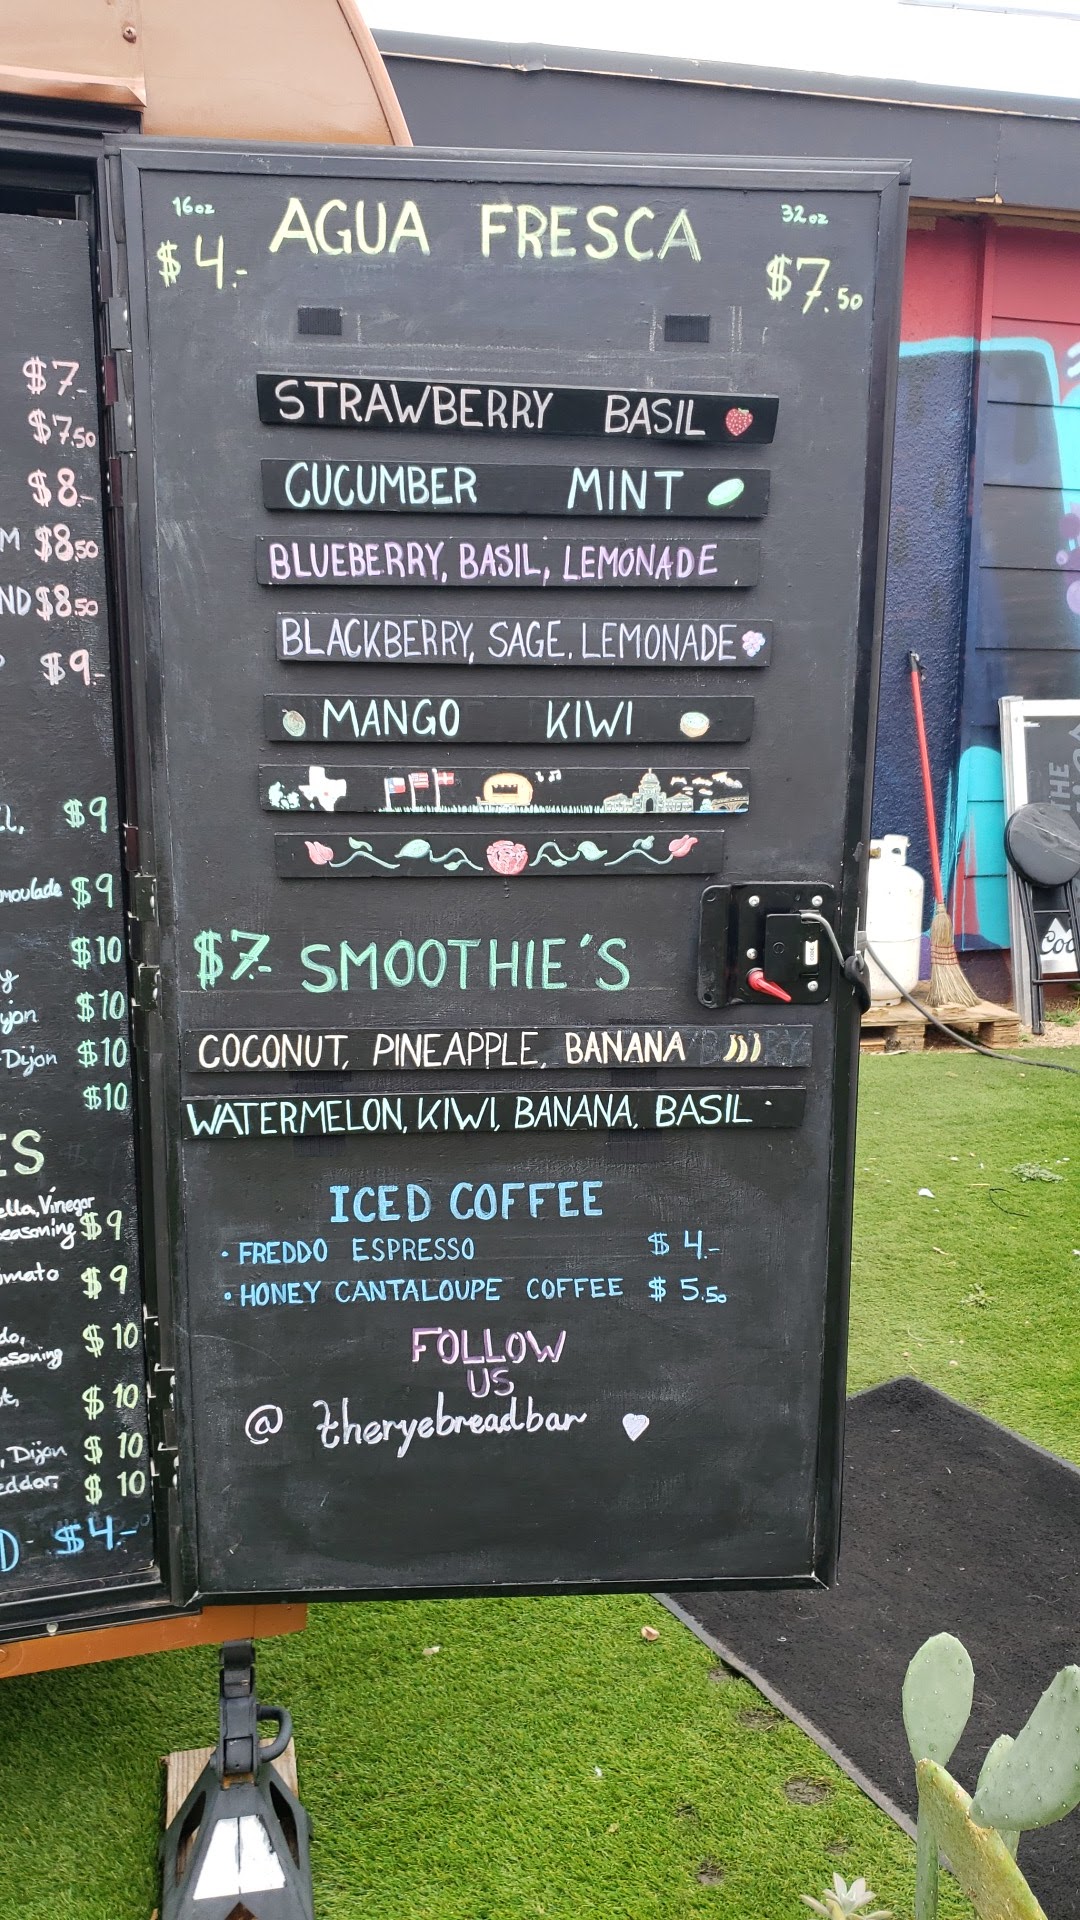 16oz AGUA FRESCA 32oz
$4.- $7.50
STRAWBERRY BASIL
CUCUMBER MINT
BLUEBERRY, BASIL, LEMONADE
BLACKBERRY, SAGE, LEMONADE
MANGO KIWI
$7.- SMOOTHIE'S
COCONUT, PINEAPPLE, BANANA
WATERMELON, KIWI, BANANA, BASIL
ICED COFFEE
• FREDDO ESPRESSO $4.-
• HONEY CANTALOUPE COFFEE $5.50
FOLLOW
US
@ theryebreadbar
$7.-
$7.50
$8.-
$8.50
$8.50
$9.-
$9
$9
$10
$10
Dijon $10
$10
Vinegar
$9
$9
$10
$10
Dijon $10
$10
$4.-
THE